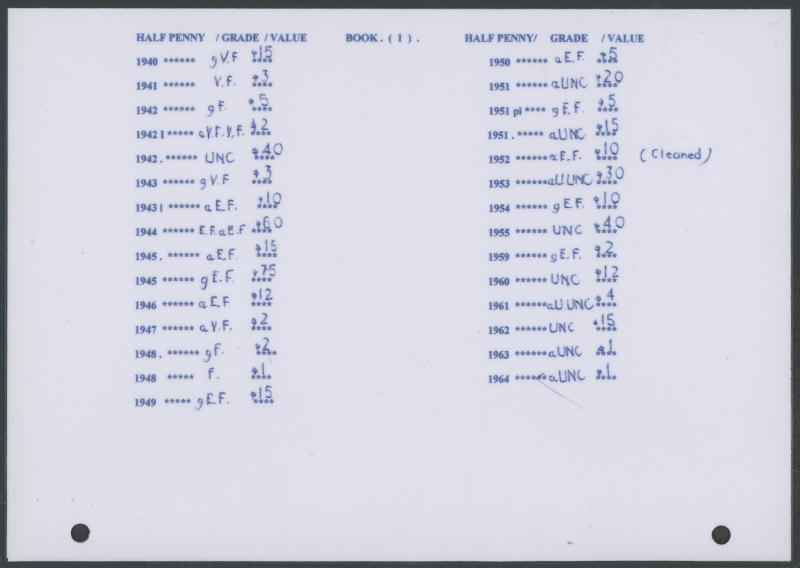 HALF PENNY / GRADE / VALUE
1940 ****** gV.F. $15 ****
1941 ****** V.F. $3 ****
1942 ****** gF. $5 ****
1942 I ***** aV.F. V.F. $2 ****
1942. ****** UNC $40 ****
1943 ****** gV.F $3 ****
1943 I ****** aE.F. $10 ****
1944 ****** E.F. aE.F $60 ****
1945. ****** aE.F. $15 ****
1945 ***** gE.F. $75 ****
1946 ****** aE.F $12 ****
1947 ****** aV.F. $2 ****
1948. ****** gF. $2 ****
1948 ***** F. $1 ****
1949 ***** gE.F. $15 ****
BOOK. ( 1 ) .
HALF PENNY/ GRADE / VALUE
1950 ****** aE.F. $5 ****
1951 ****** aUNC $20 ****
1951 pi **** gE.F. $5 ****
1951. ***** aUNC $15 ****
1952 ****** aE.F. $10 **** (Cleaned)
1953 ****** aU UNC $30 ****
1954 ****** gE.F. $10 ****
1955 ****** UNC $40 ****
1959 ****** gE.F. $2 ****
1960 ****** UNC $12 ****
1961 ****** aU UNC $4 ****
1962 ****** UNC $15 ****
1963 ****** aUNC $1 ****
1964 ****** aUNC $1 ****